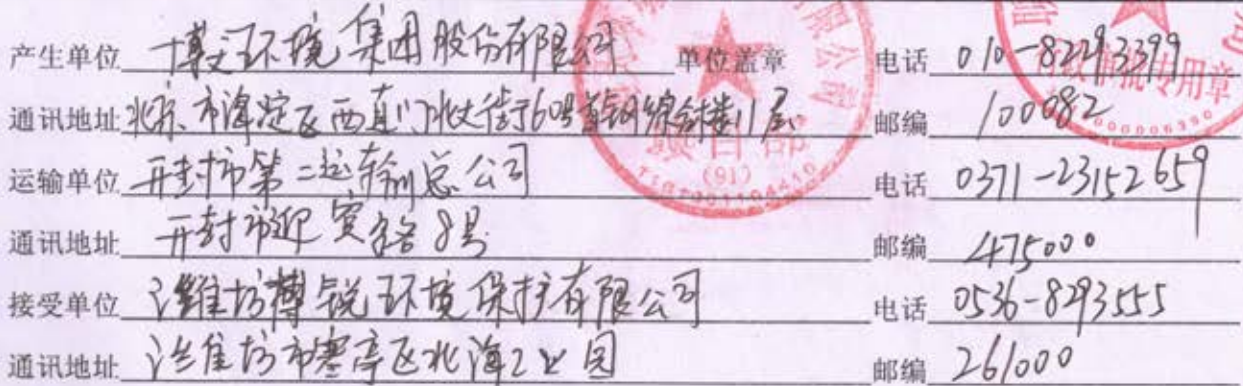 产生单位 博文环境集团股份有限公司 单位盖章 电话 010-82293399
通讯地址 北京市海淀区西直门北大街60号首钢综合楼11层 邮编 100082
运输单位 开封市第二运输总公司 电话 0371-23152659
通讯地址 开封市迎宾路8号 邮编 475000
接受单位 潍坊博锐环境保护有限公司 电话 0536-8293555
通讯地址 潍坊市寒亭区北海工业园 邮编 261000
有限公司
项目部
(91)
行政审批专用章